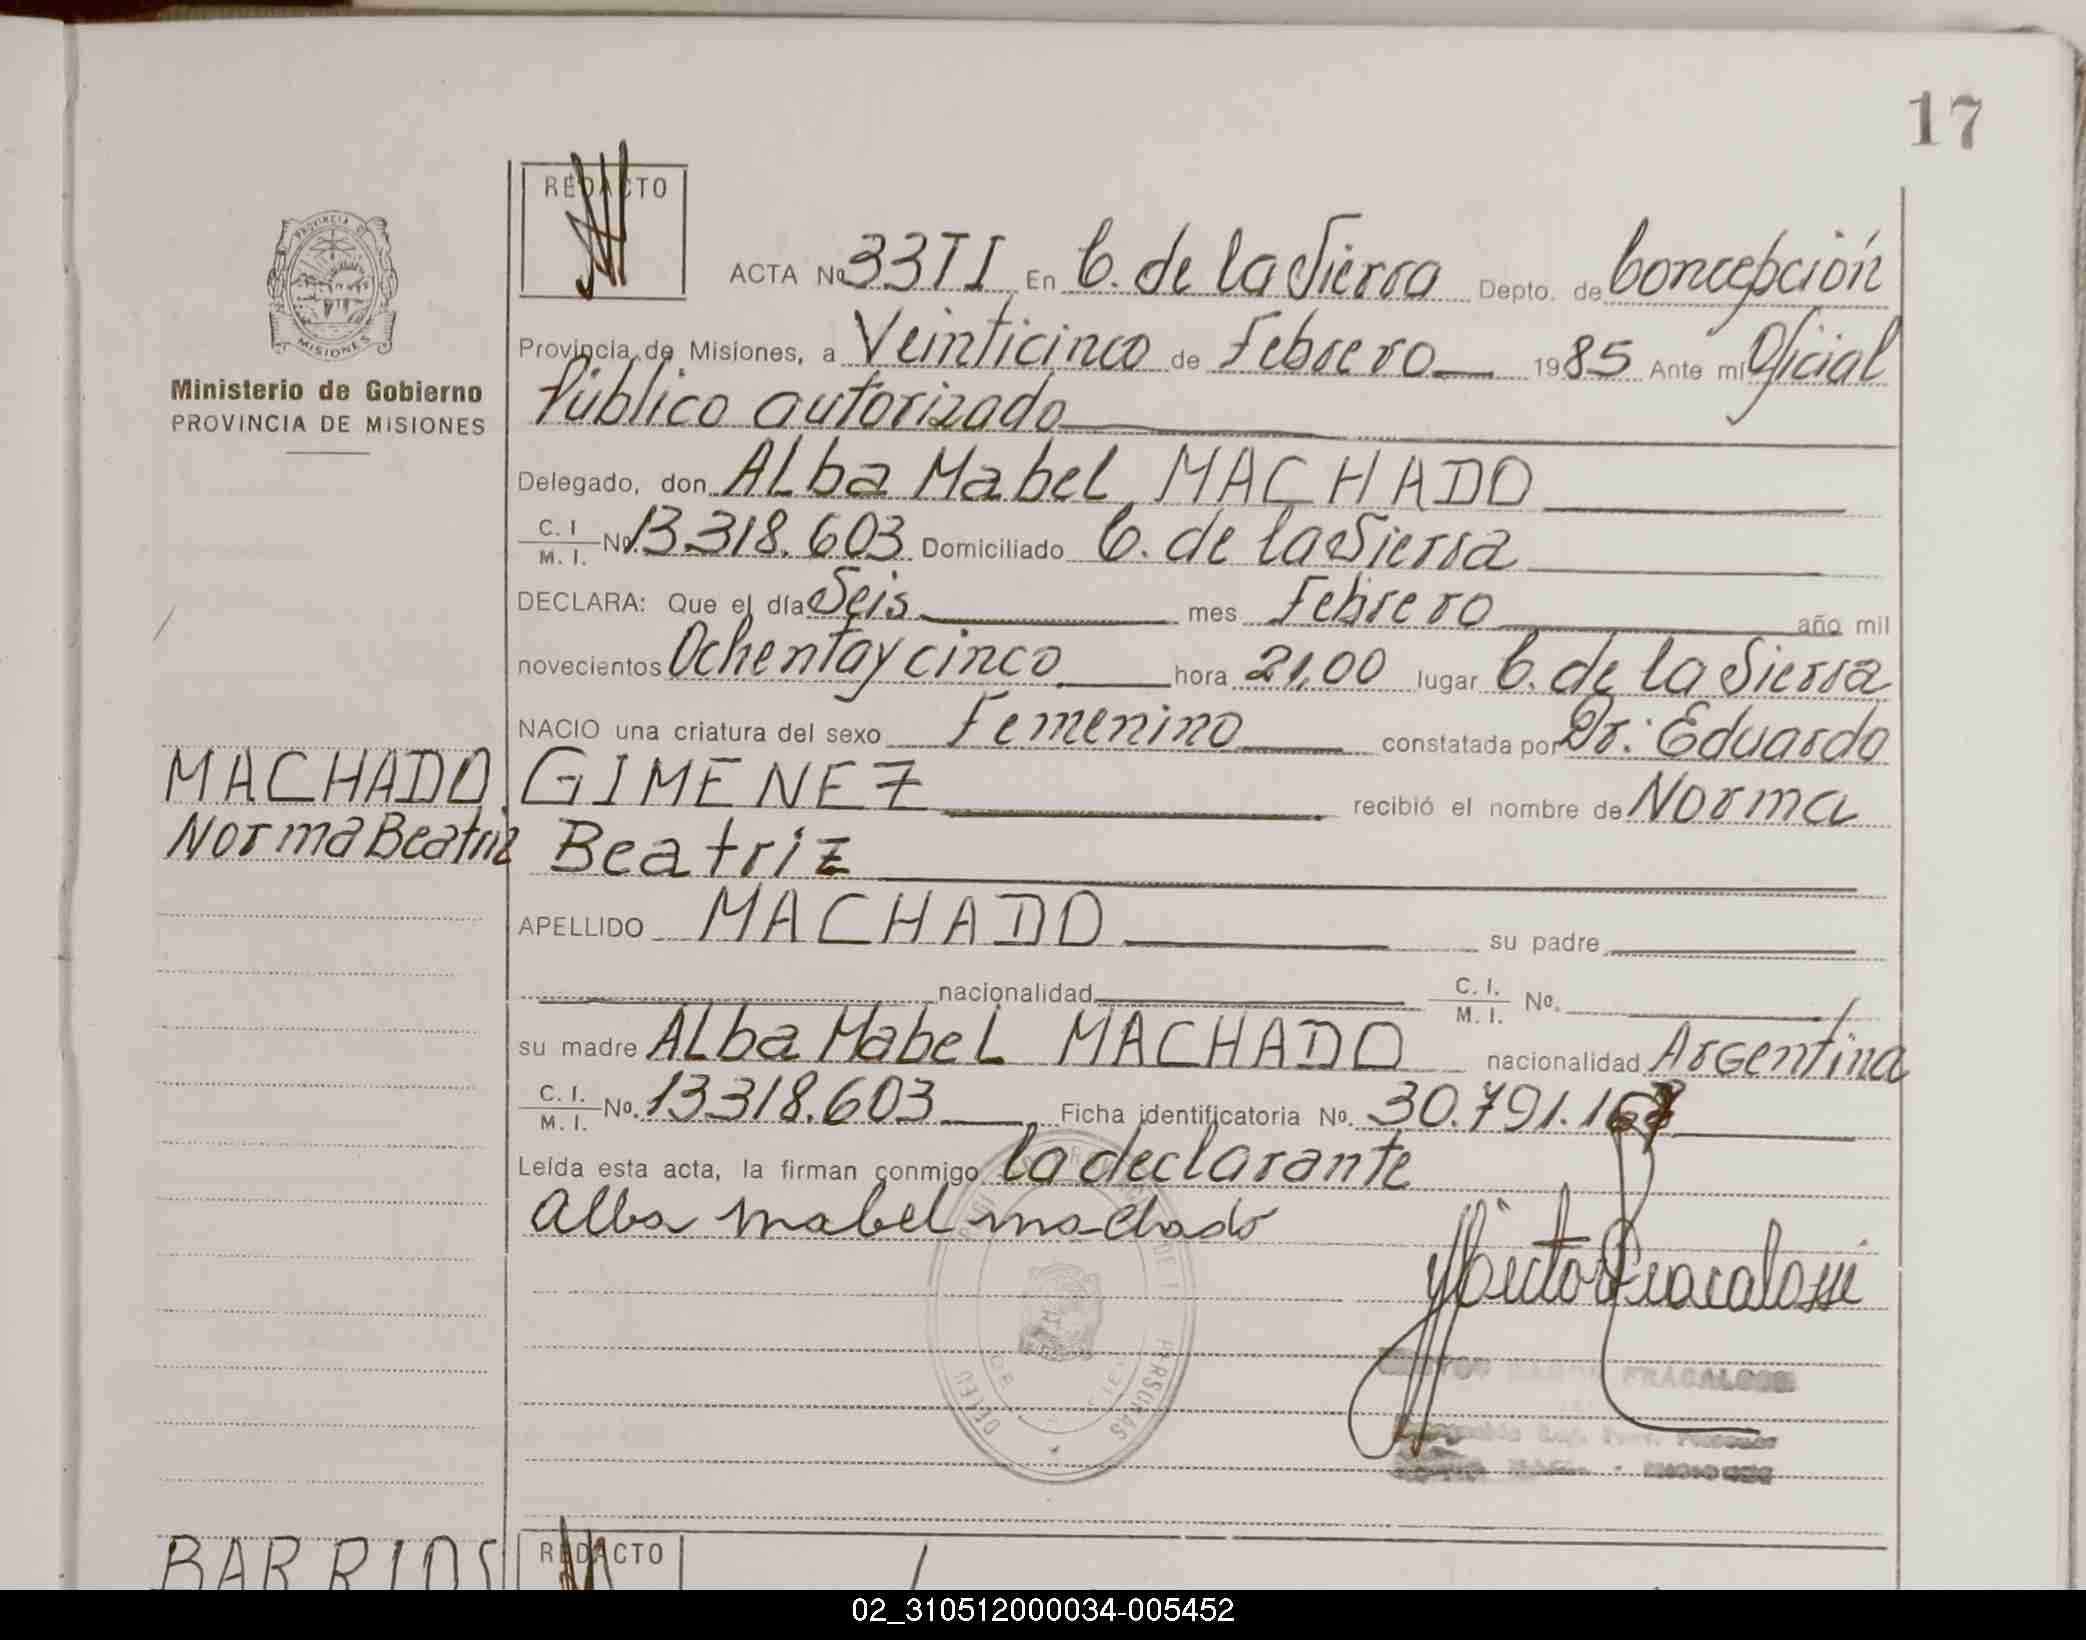 17
REDACTO
PROVINCIA DE
MISIONES
Ministerio de Gobierno
PROVINCIA DE MISIONES
ACTA Nº 33TI En C. de la Sierra Depto. de Concepción
Provincia de Misiones, a Veinticinco de Febrero 1985 Ante mí Oficial
Público autorizado
Delegado, don Alba Mabel MACHADO
C. I. M. I. Nº 13.318.603 Domiciliado C. de la Sierra
DECLARA: Que el día Seis mes Febrero año mil
novecientos Ochenta y cinco hora 21,00 lugar C. de la Sierra
NACIO una criatura del sexo Femenino constatada por Dr. Eduardo
GIMENEZ recibió el nombre de Norma
Beatriz
MACHADO
Norma Beatriz
APELLIDO MACHADO su padre
nacionalidad C. I. M. I. Nº.
su madre Alba Mabel MACHADO nacionalidad Argentina
C. I. M. I. Nº. 13.318.603 Ficha identificatoria Nº. 30.791.16
Leída esta acta, la firman conmigo la declarante
Alba Mabel Machado
Hector Fracalossi
FRACALOSSI
BARRIOS
REDACTO
02_310512000034-005452